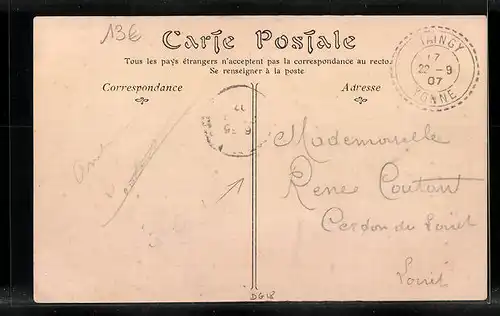 13€
Carte Postale
Tous les pays étrangers n'acceptent pas la correspondance au recto.
Se renseigner à la poste
Correspondance
Adresse
TAINGY
17
22-9
07
YONNE
Mademoiselle
Renée Coutant
Cerdon du Loiret
Loiret
DG18